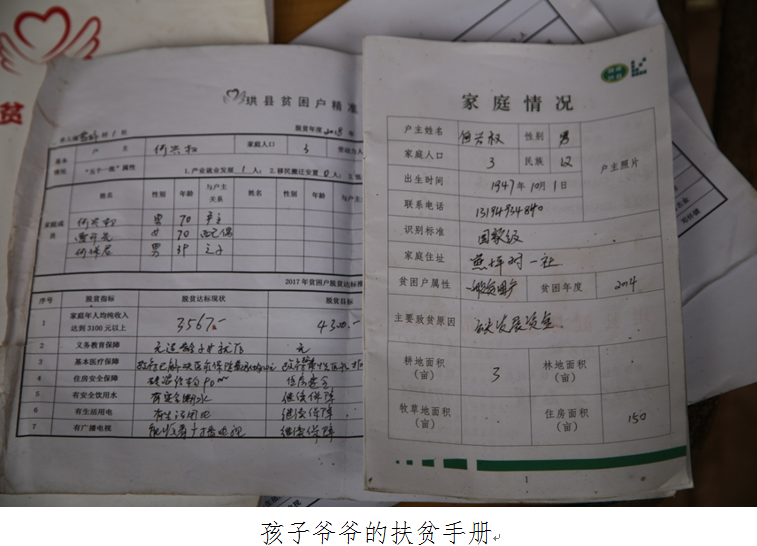 贫
珙县贫困户精准
户主 何兴权 家庭人口 3
基本情况 "五个一批"属性 1.产业就业发展 1 人; 2.移民搬迁安置 0 人;
姓名 性别 年龄 与户主关系 姓名 性别 年龄 与户主关系
家庭成员
何兴权 男 70 户主
女 70 配偶
男 39 之子
2017年贫困户脱贫达标
序号 脱贫指标 脱贫达标现状 脱贫目标
1 家庭年人均纯收入达到3100元以上 3567 4300
2 义务教育保障 无
3 基本医疗保障
4 住房安全保障 住房安全
5 有安全饮用水 有安全饮水 继续保障
6 有生活用电 有生活用电 继续保障
7 有广播电视 能收看广播电视 继续保障
家庭情况
户主姓名 何兴权 性别 男
户主照片
家庭人口 3 民族 汉
出生时间 1947年10月1日
联系电话
识别标准 国家级
家庭住址 鱼坪村一社
贫困户属性 一般贫困户 贫困年度 2014
主要致贫原因 缺发展资金
耕地面积(亩) 3 林地面积(亩)
牧草地面积(亩) 住房面积(亩) 150
1
孩子爷爷的扶贫手册